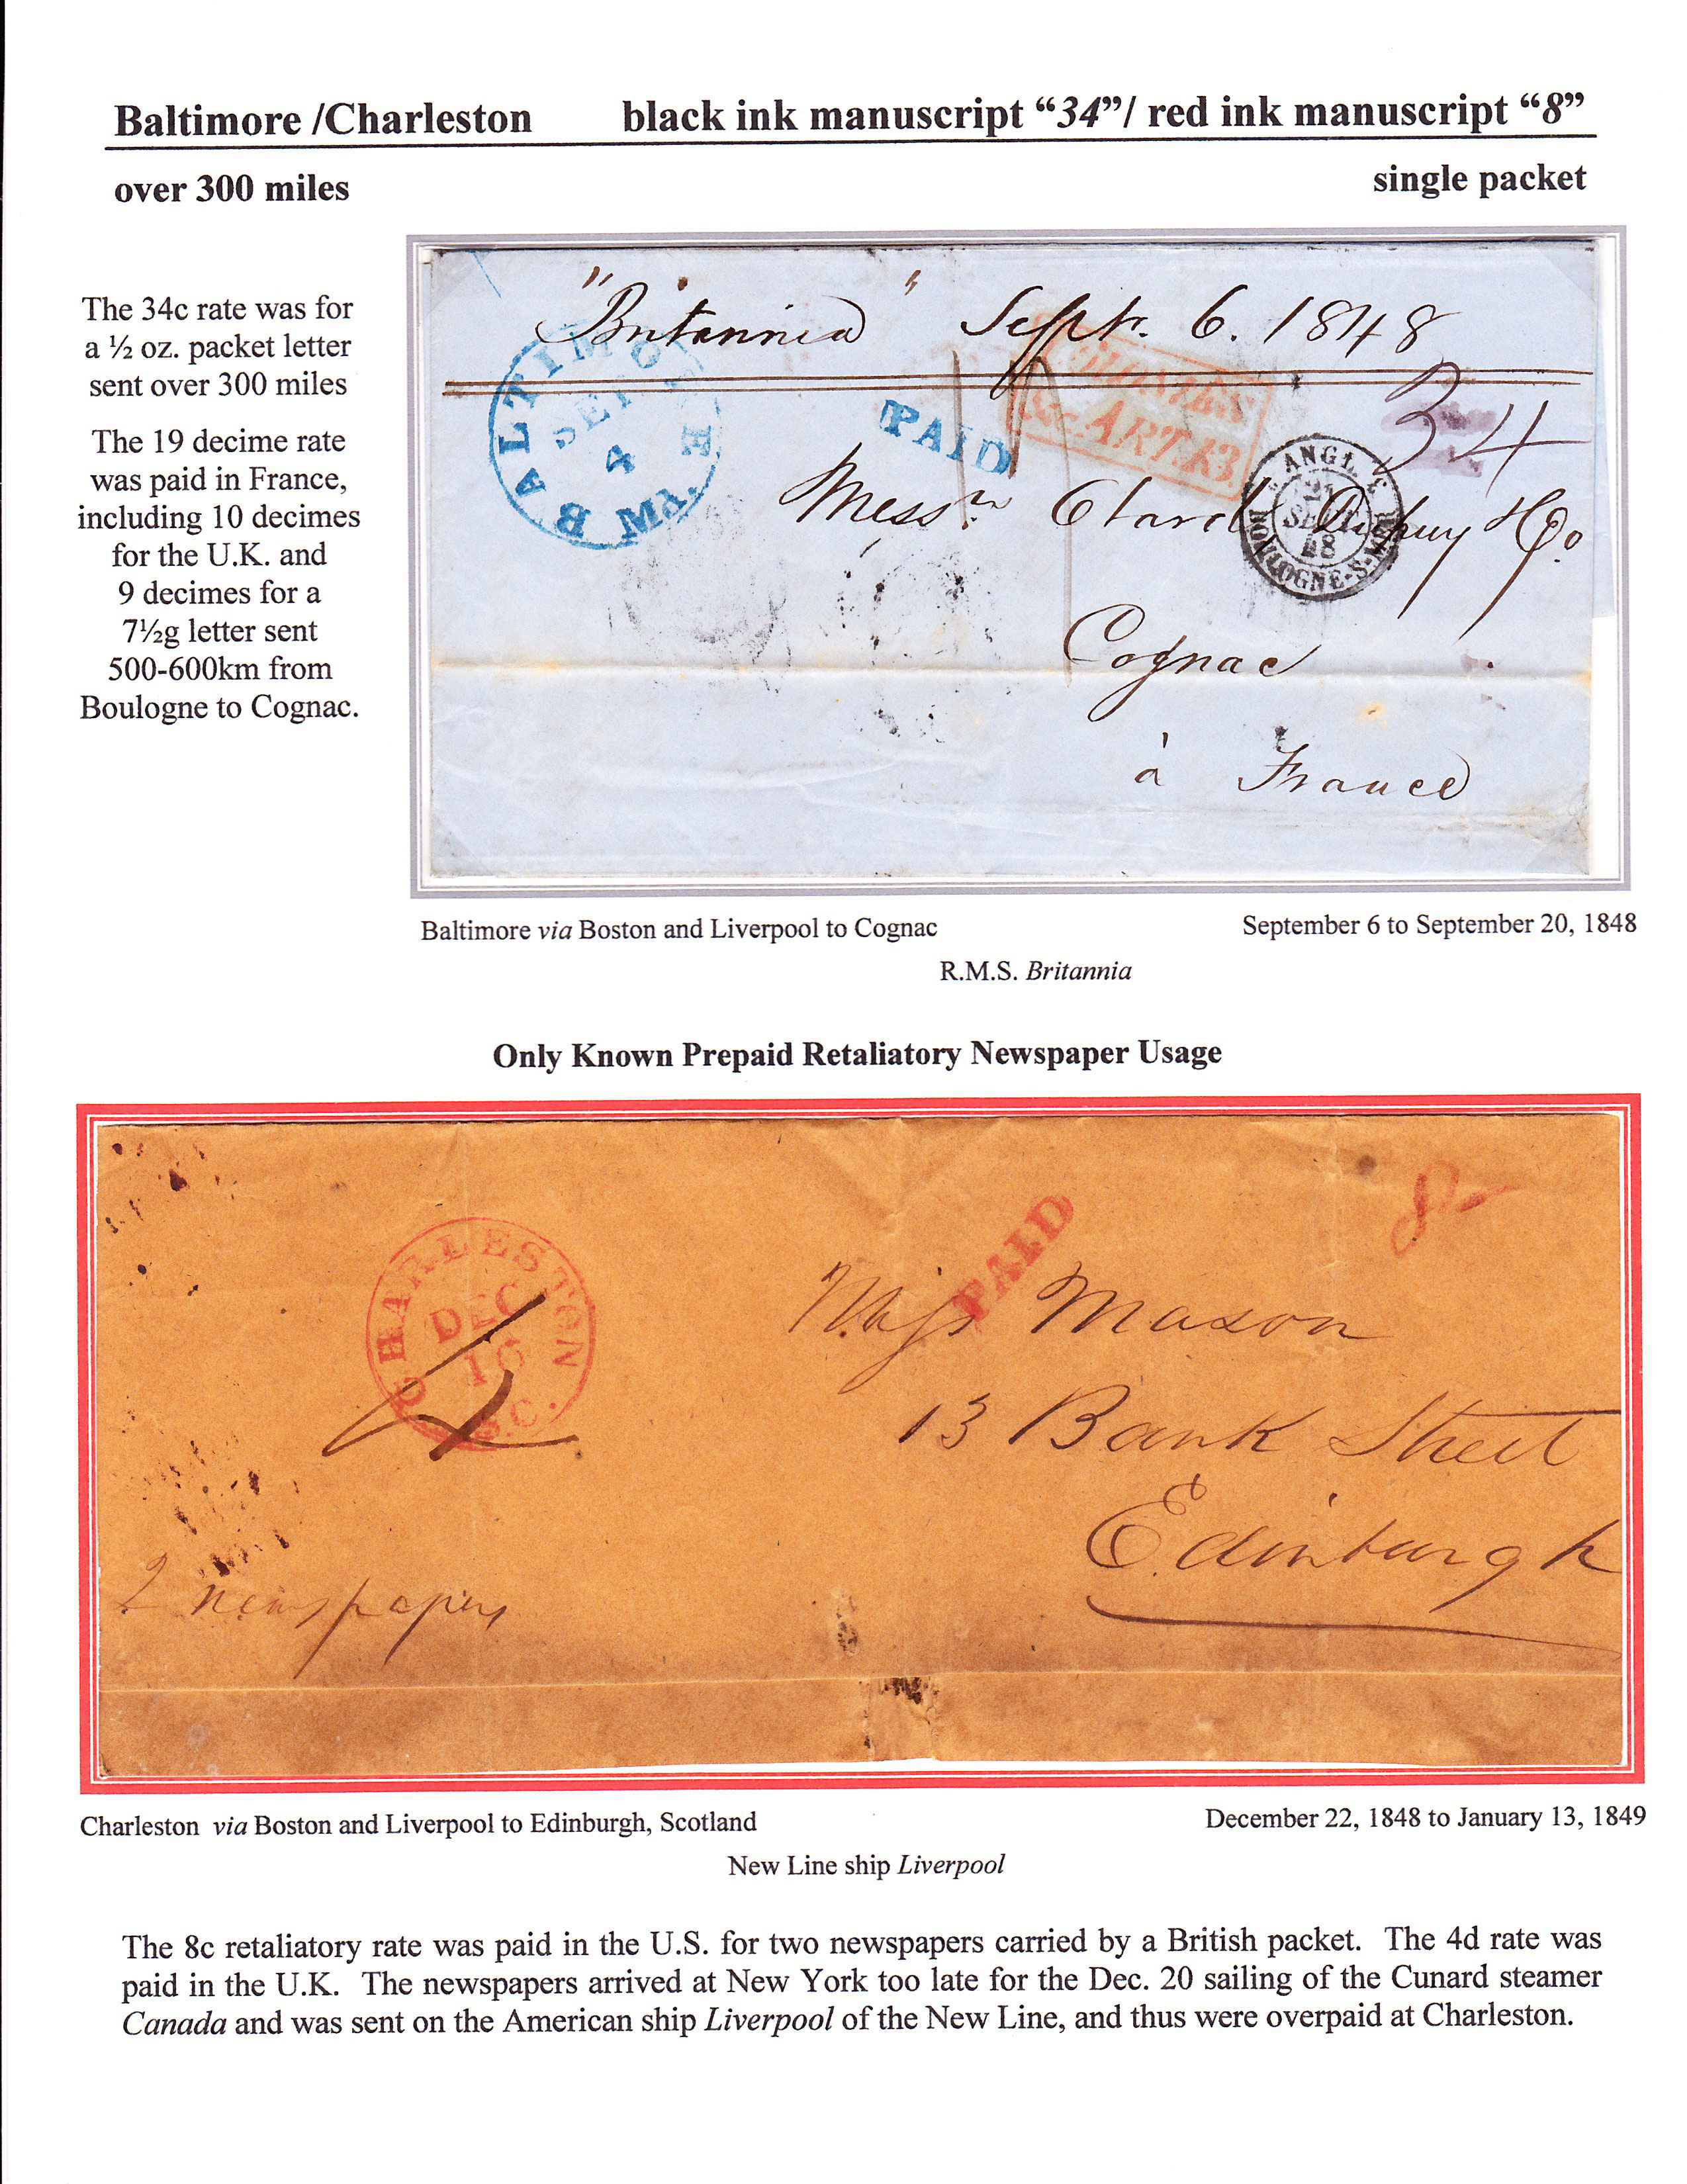 Baltimore /Charleston black ink manuscript “34”/ red ink manuscript “8”
over 300 miles single packet
The 34c rate was for
a ½ oz. packet letter
sent over 300 miles
The 19 decime rate
was paid in France,
including 10 decimes
for the U.K. and
9 decimes for a
7½g letter sent
500-600km from
Boulogne to Cognac.
"Britannia" Sept. 6. 1848
BALTIMORE Md.
SEP
4
PAID
COLONIES
&c ART. 13
34
ANGL.
SEPT
48
BOULOGNE-S-MER
Messrs Otard Dupuy & Co
Cognac
à France
Baltimore via Boston and Liverpool to Cognac September 6 to September 20, 1848
R.M.S. Britannia
Only Known Prepaid Retaliatory Newspaper Usage
CHARLESTON S.C.
DEC
16
PAID
8
Miss Mason
13 Bank Street
Edinburgh
2 newspapers
Charleston via Boston and Liverpool to Edinburgh, Scotland December 22, 1848 to January 13, 1849
New Line ship Liverpool
The 8c retaliatory rate was paid in the U.S. for two newspapers carried by a British packet. The 4d rate was
paid in the U.K. The newspapers arrived at New York too late for the Dec. 20 sailing of the Cunard steamer
Canada and was sent on the American ship Liverpool of the New Line, and thus were overpaid at Charleston.